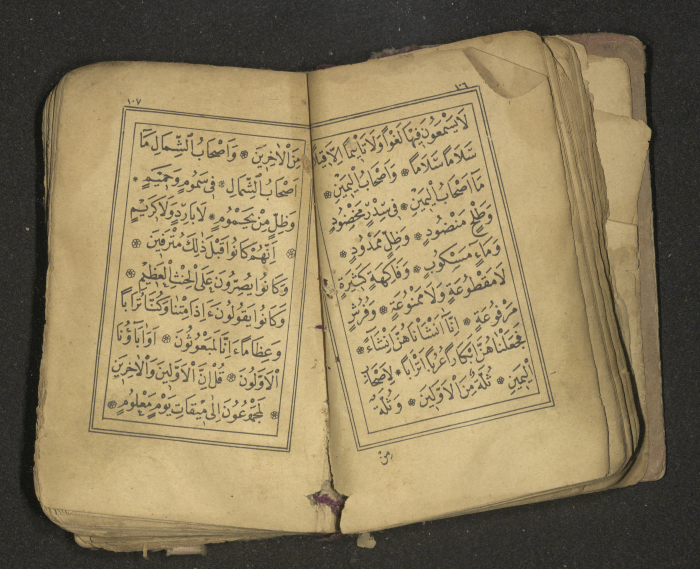 ١٠٦
لَا يَسْمَعُونَ فِيهَا لَغْوًا وَلَا تَأْثِيمًا إِلَّا قِيلًا
سَلَامًا سَلَامًا ❊ وَاَصْحَابُ الْيَمِينِ ❊
مَا اَصْحَابُ الْيَمِينِ ❊ فِى سِدْرٍ مَخْضُودٍ
وَطَلْحٍ مَنْضُودٍ ❊ وَظِلٍّ مَمْدُودٍ ❊
وَمَاءٍ مَسْكُوبٍ ❊ وَفَاكِهَةٍ كَثِيرَةٍ
لَا مَقْطُوعَةٍ وَلَا مَمْنُوعَةٍ ❊ وَفُرُشٍ
مَرْفُوعَةٍ ❊ اِنَّا اَنْشَاْنَاهُنَّ اِنْشَاءً ❊
فَجَعَلْنَاهُنَّ اَبْكَارًا عُرُبًا اَتْرَابًا ❊ لِاَصْحَابِ
الْيَمِينِ ❊ ثُلَّةٌ مِنَ الْاَوَّلِينَ ❊ وَثُلَّةٌ
مِنَ
١٠٧
مِنَ الْاٰخِرِينَ ❊ وَاَصْحَابُ الشِّمَالِ مَا
اَصْحَابُ الشِّمَالِ ❊ فِى سَمُومٍ وَحَمِيمٍ ❊
وَظِلٍّ مِنْ يَحْمُومٍ ❊ لَا بَارِدٍ وَلَا كَرِيمٍ
❊ اِنَّهُمْ كَانُوا قَبْلَ ذٰلِكَ مُتْرَفِينَ ❊
وَكَانُوا يُصِرُّونَ عَلَى الْحِنْثِ الْعَظِيمِ ❊
وَكَانُوا يَقُولُونَ ءَاِذَا مِتْنَا وَكُنَّا تُرَابًا
وَعِظَامًا ءَاِنَّا لَمَبْعُوثُونَ ❊ اَوَاٰبَاؤُنَا
الْاَوَّلُونَ ❊ قُلْ اِنَّ الْاَوَّلِينَ وَالْاٰخِرِينَ
لَمَجْمُوعُونَ اِلٰى مِيقَاتِ يَوْمٍ مَعْلُومٍ ❊